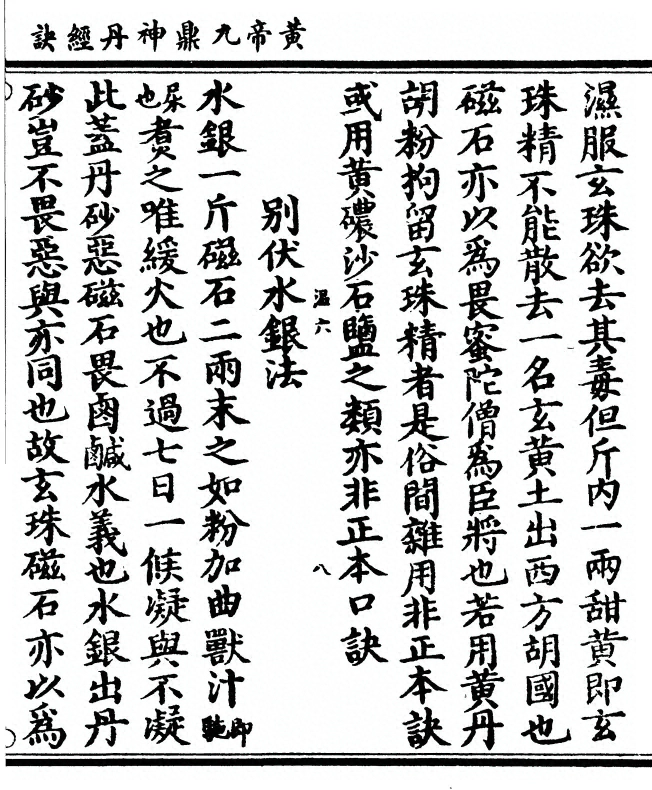 黃帝九鼎神丹經訣
濕服玄珠欲去其毒但斤内一兩甜黃即玄
珠精不能散去一名玄黃土出西方胡國也
磁石亦以爲畏蜜陀僧爲臣將也若用黃丹
胡粉拘留玄珠精者是俗間雜用非正本訣
或用黃礬沙石鹽之類亦非正本口訣
溫六
八
別伏水銀法
水銀一斤磁石二兩末之如粉加曲獸汁即驢
尿也煑之唯緩火也不過七日一候凝與不凝
此蓋丹砂惡磁石畏鹵鹹水義也水銀出丹
砂豈不畏惡與亦同也故玄珠磁石亦以爲